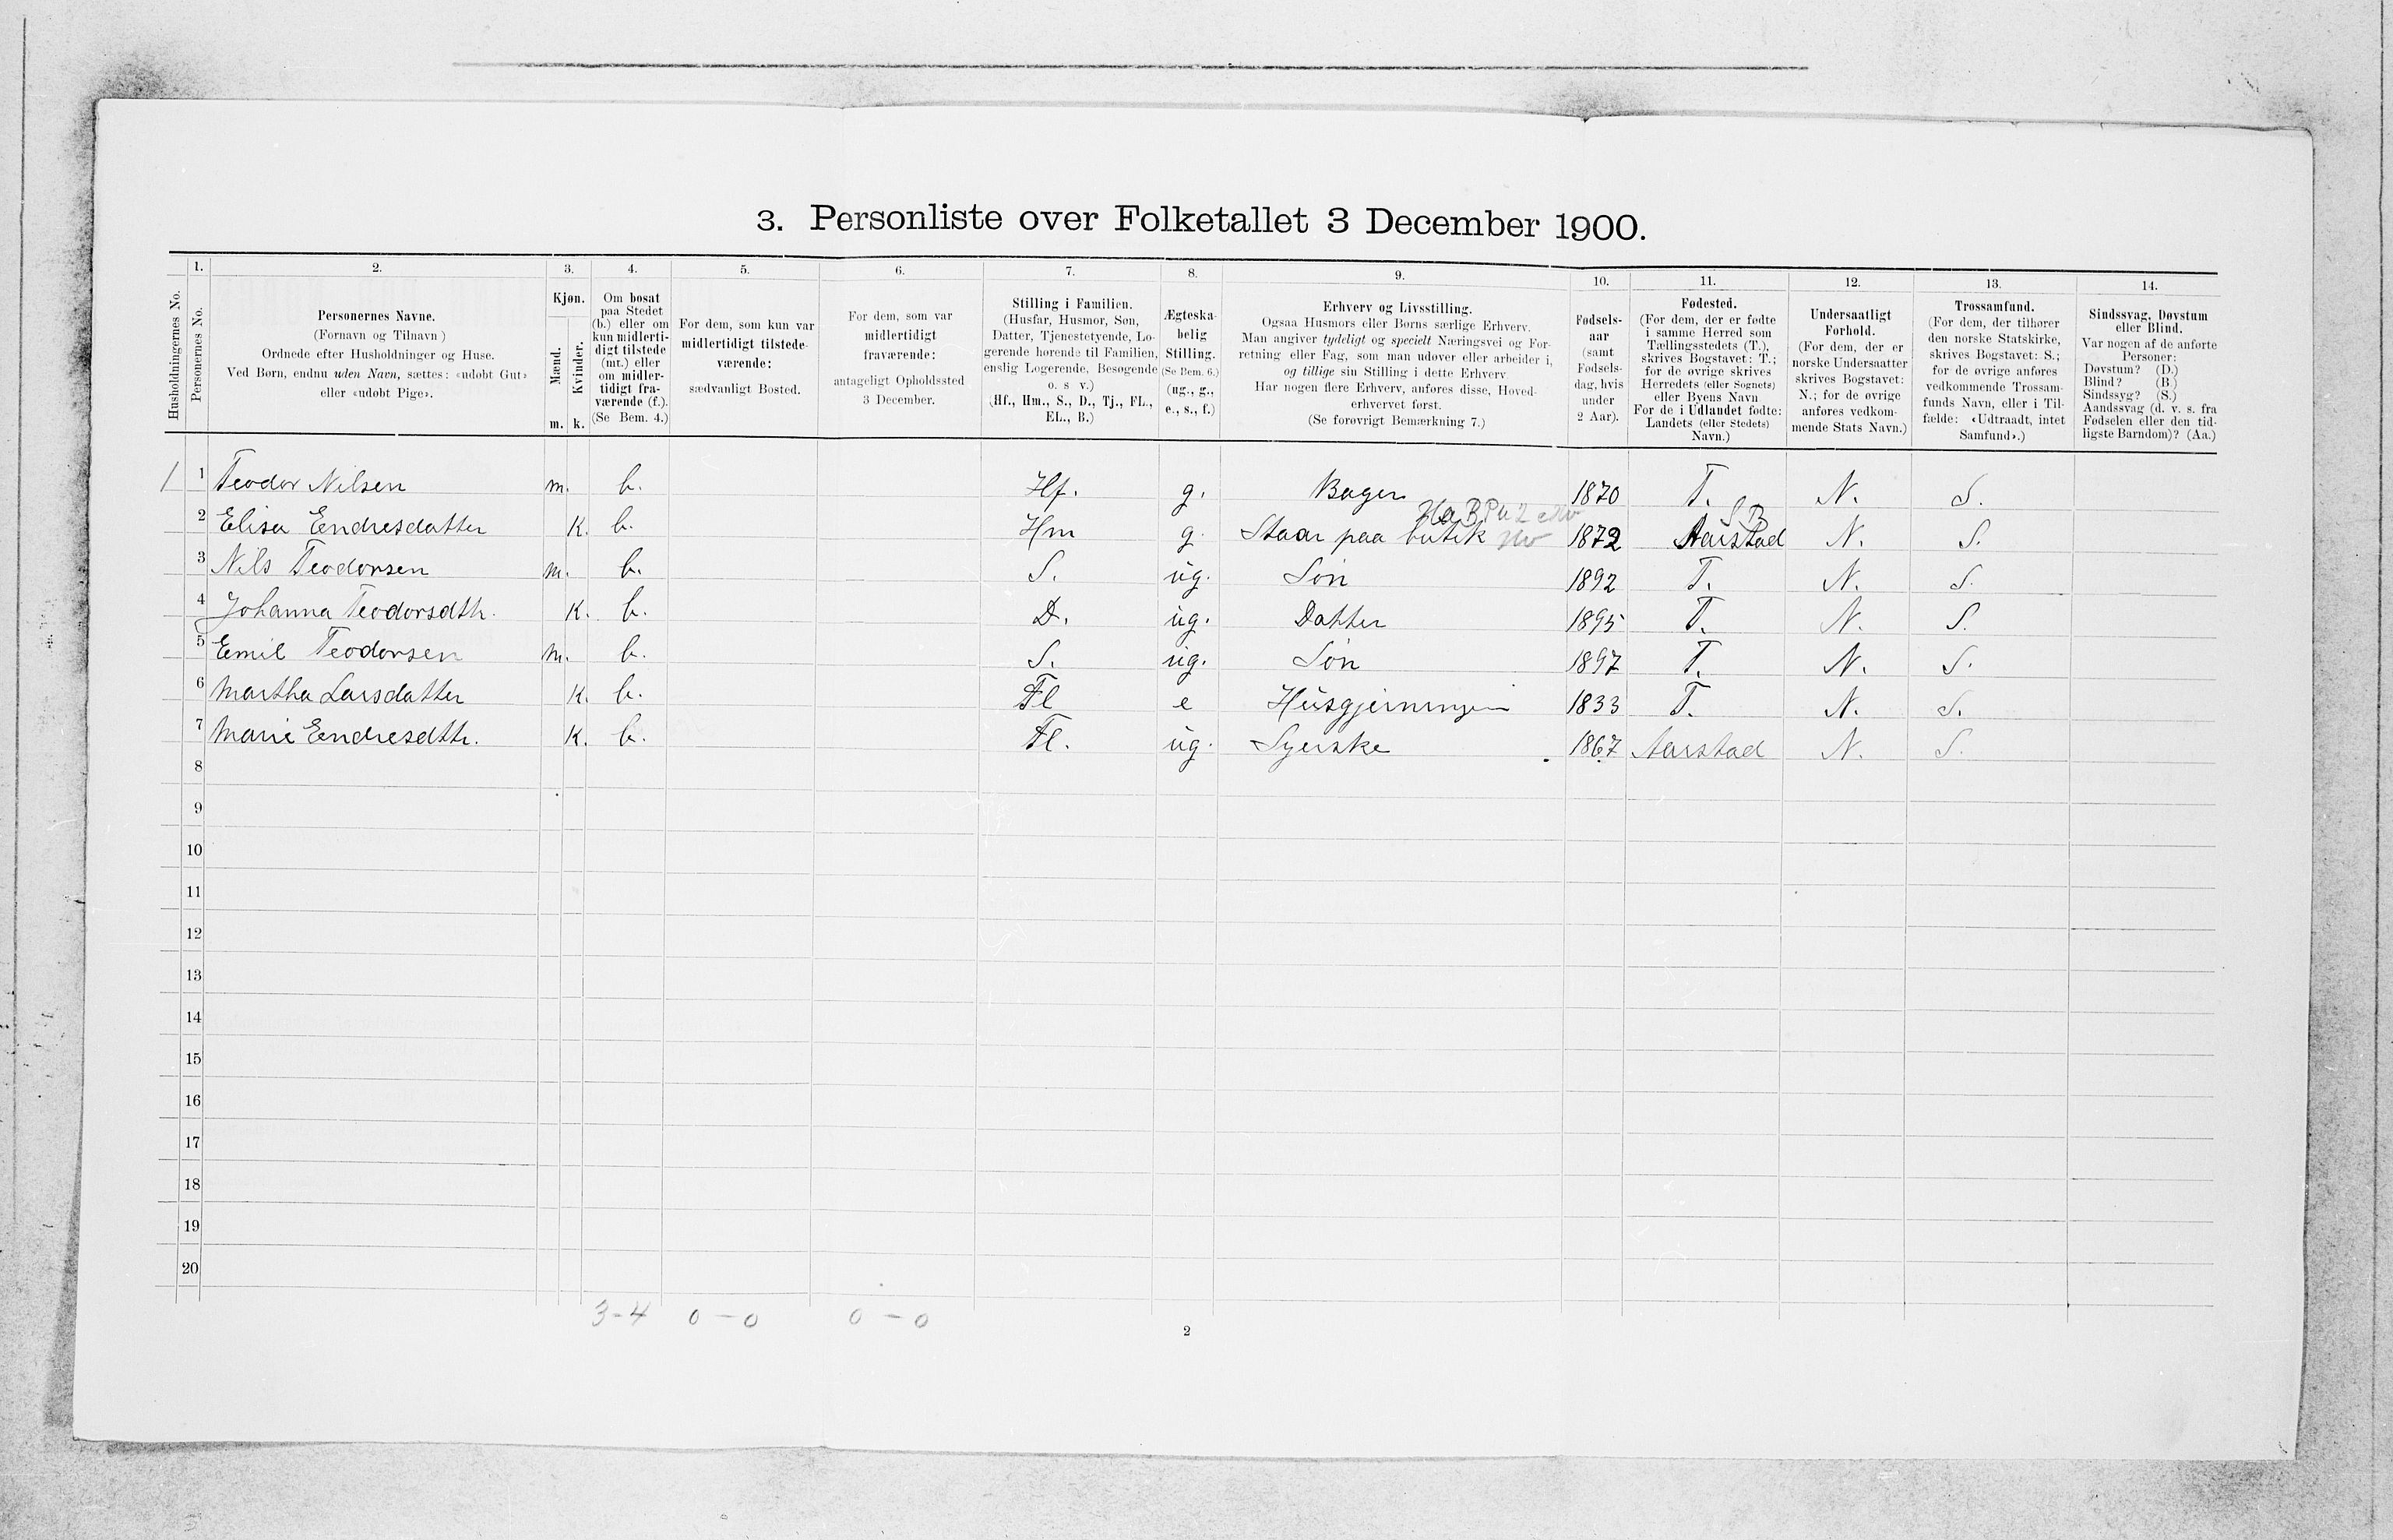 3. Personliste over Folketallet 3 December 1900.
Husholdningernes No.
1.
Personernes No.
2.
Personernes Navne.
(Fornavn og Tilnavn)
Ordnede efter Husholdninger og Huse.
Ved Børn, endnu uden Navn, sættes: «udøbt Gut»
eller «udøbt Pige».
3.
Kjøn.
Mænd.
Kvinder.
m. k.
4.
Om bosat
paa Stedet
(b.) eller om
kun midlerti-
digt tilstede
(mt.) eller
om midler-
tidigt fra-
værende (f.).
(Se Bem. 4.)
5.
For dem, som kun var
midlertidigt tilstede-
værende:
sædvanligt Bosted.
6.
For dem, som var
midlertidigt
fraværende:
antageligt Opholdssted
3 December.
7.
Stilling i Familien.
(Husfar, Husmor, Søn,
Datter, Tjenestetyende, Lo-
gerende hørende til Familien,
enslig Logerende, Besøgende
o. s v.)
(Hf., Hm., S., D., Tj., FL.,
EL., B.)
8.
Ægteska-
belig
Stilling.
(Se Bem. 6.)
(ug., g.,
e., s., f.)
9.
Erhverv og Livsstilling.
Ogsaa Husmors eller Børns særlige Erhverv.
Man angiver tydeligt og specielt Næringsvei og For-
retning eller Fag, som man udøver eller arbeider i,
og tillige sin Stilling i dette Erhverv.
Har nogen flere Erhverv, anføres disse, Hoved-
erhvervet først.
(Se forøvrigt Bemærkning 7.)
10.
Fødsels-
aar
(samt
Fødsels-
dag, hvis
under
2 Aar).
11.
Fødested.
(For dem, der er fødte
i samme Herred som
Tællingsstedets (T.),
skrives Bogstavet: T.;
for de øvrige skrives
Herredets (eller Sognets)
eller Byens Navn
For de i Udlandet fødte:
Landets (eller Stedets)
Navn.)
12.
Undersaatligt
Forhold.
(For dem, der er
norske Undersaatter
skrives Bogstavet:
N.; for de øvrige
anføres vedkom-
mende Stats Navn.)
13.
Trossamfund.
(For dem, der tilhører
den norske Statskirke,
skrives Bogstavet: S.;
for de øvrige anføres
vedkommende Trossam-
funds Navn, eller i Til-
fælde: «Udtraadt, intet
Samfund».)
14.
Sindssvag, Døvstum
eller Blind.
Var nogen af de anførte
Personer:
Døvstum? (D.)
Blind? (B.)
Sindssyg? (S.)
Aandssvag (d. v. s. fra
Fødselen eller den tid-
ligste Barndom)? (Aa.)
1 1 Teodor Nilsen m. b. Hf. g. Bager 1870 T. N. S.
2 Elisa Endresdatter K. b. Hm g. Staar paa butik 1872 Aarstad N. S.
3 Nils Teodorsen m. b. S. ug. Søn 1892 T. N. S.
4 Johanna Teodorsdtr. K. b. D. ug. Datter 1895 T. N. S.
5 Emil Teodorsen m. b. S. ug. Søn 1897 T. N. S.
6 Martha Larsdatter K. b. Fl e Husgjerningen 1833 T. N. S.
7 Marie Eendresdtr. K. b. Fl. ug. Syerske 1867 Aarstad N. S.
8
9
10
11
12
13
14
15
16
17
18
19
20
3-4 0-0 0-0
2